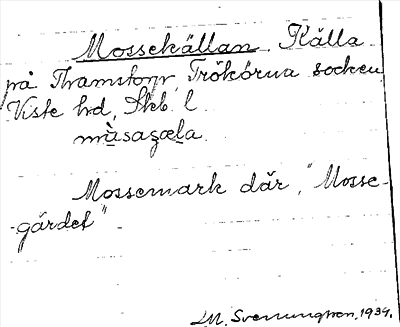 Mossekällan. Källa
på Thamstorp, Trökörna socken,
Viste hd, Skb. l.
mà̱saʒæḻa.
Mossemark där, "Mosse-
-gärdet"
L.M. Svenungsson, 1934.